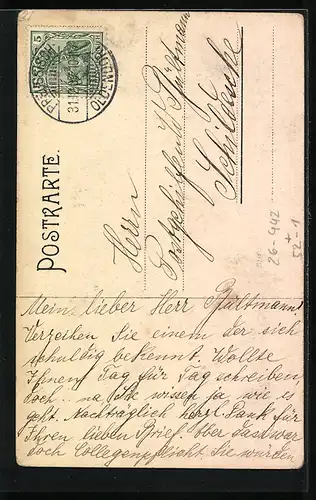 5
PREUSSISCH OLDENDORF
31.12.
POSTKARTE.
Herrn
Postgehilfe W. Pultmann
Schildesche
26-942
+
52-1
Mein lieber Herr Pultmann!
Verzeihen Sie einem der sich
schuldig bekennt. Wollte
Ihnen Tag für Tag schreiben,
doch .. na Sie wissen ja wie es
geht. Nachträglich herzl. Dank für
Ihren lieben Brief. Aber das war
doch Collegenpflicht. Sie würden